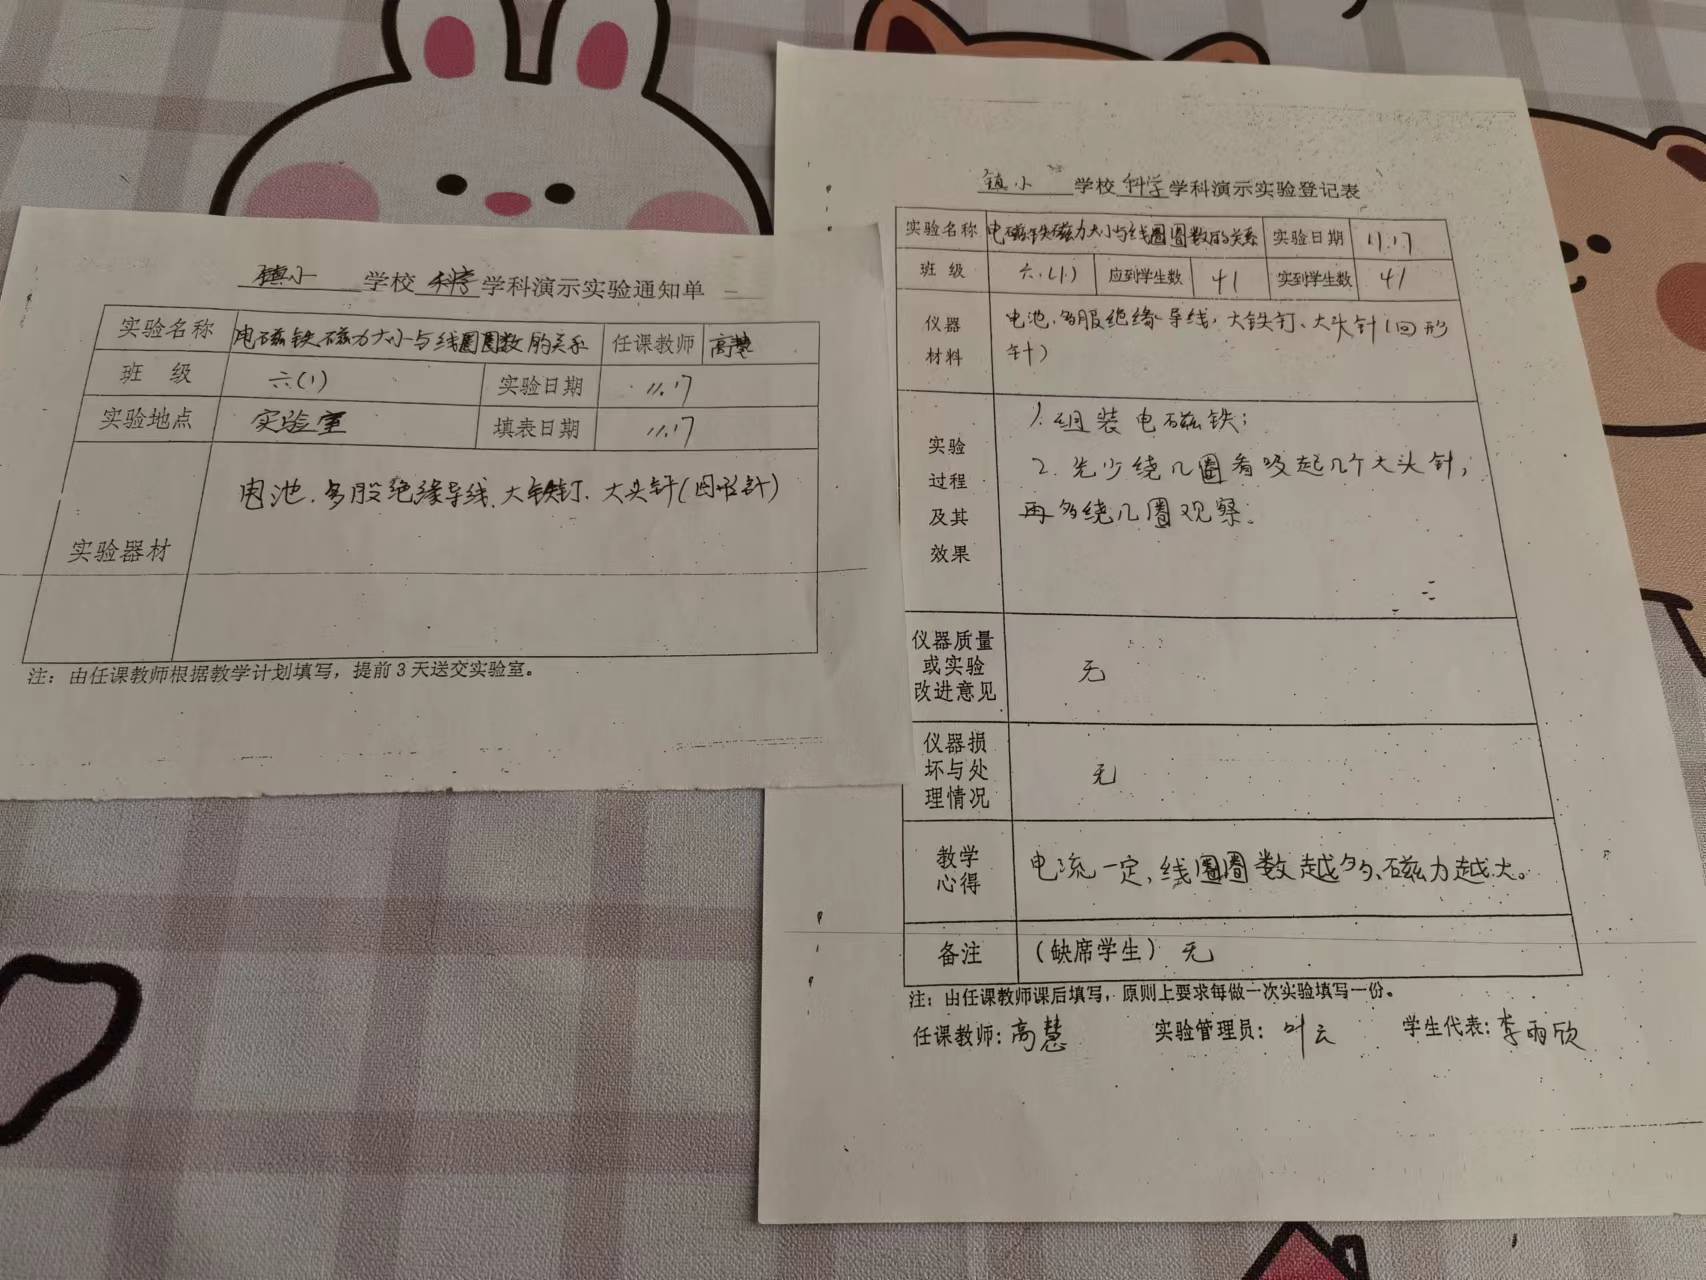 镇小 学校 科学 学科演示实验通知单
实验名称 电磁铁磁力大小与线圈圈数的关系 任课教师 高慧
班 级 六(1) 实验日期 11.17
实验地点 实验室 填表日期 11.17
实验器材 电池、多股绝缘导线、大铁钉、大头针(回形针)
注：由任课教师根据教学计划填写，提前3天送交实验室。
镇小 学校 科学 学科演示实验登记表
实验名称 电磁铁磁力大小与线圈圈数的关系 实验日期 11.17
班 级 六.(1) 应到学生数 41 实到学生数 41
仪器
材料
电池、多股绝缘导线，大铁钉、大头针(回形
针)
实验
过程
及其
效果
1. 组装电磁铁；
2. 先少绕几圈看吸起几个大头针；
再多绕几圈观察.
仪器质量
或实验
改进意见
无
仪器损
坏与处
理情况
无
教学
心得
电流一定，线圈圈数越多、磁力越大。
备注 (缺席学生) 无
注：由任课教师课后填写，原则上要求每做一次实验填写一份。
任课教师：高慧 实验管理员：叶云 学生代表：李雨欣